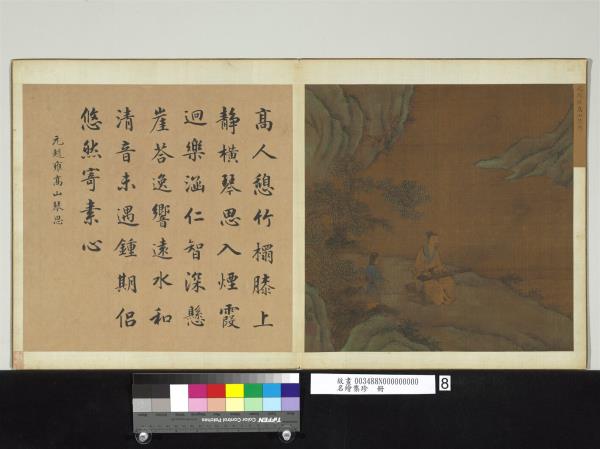 高人憩竹榻膝上
靜橫琴思入煙霞
迴樂涵仁智深懸
崖荅逸響遠水和
清音未遇鍾期侶
悠然寄素心
元趙雍高山琴思
故畫 003488N000000000
名繪集珍 冊
8
TIFFEN Color Control Patches